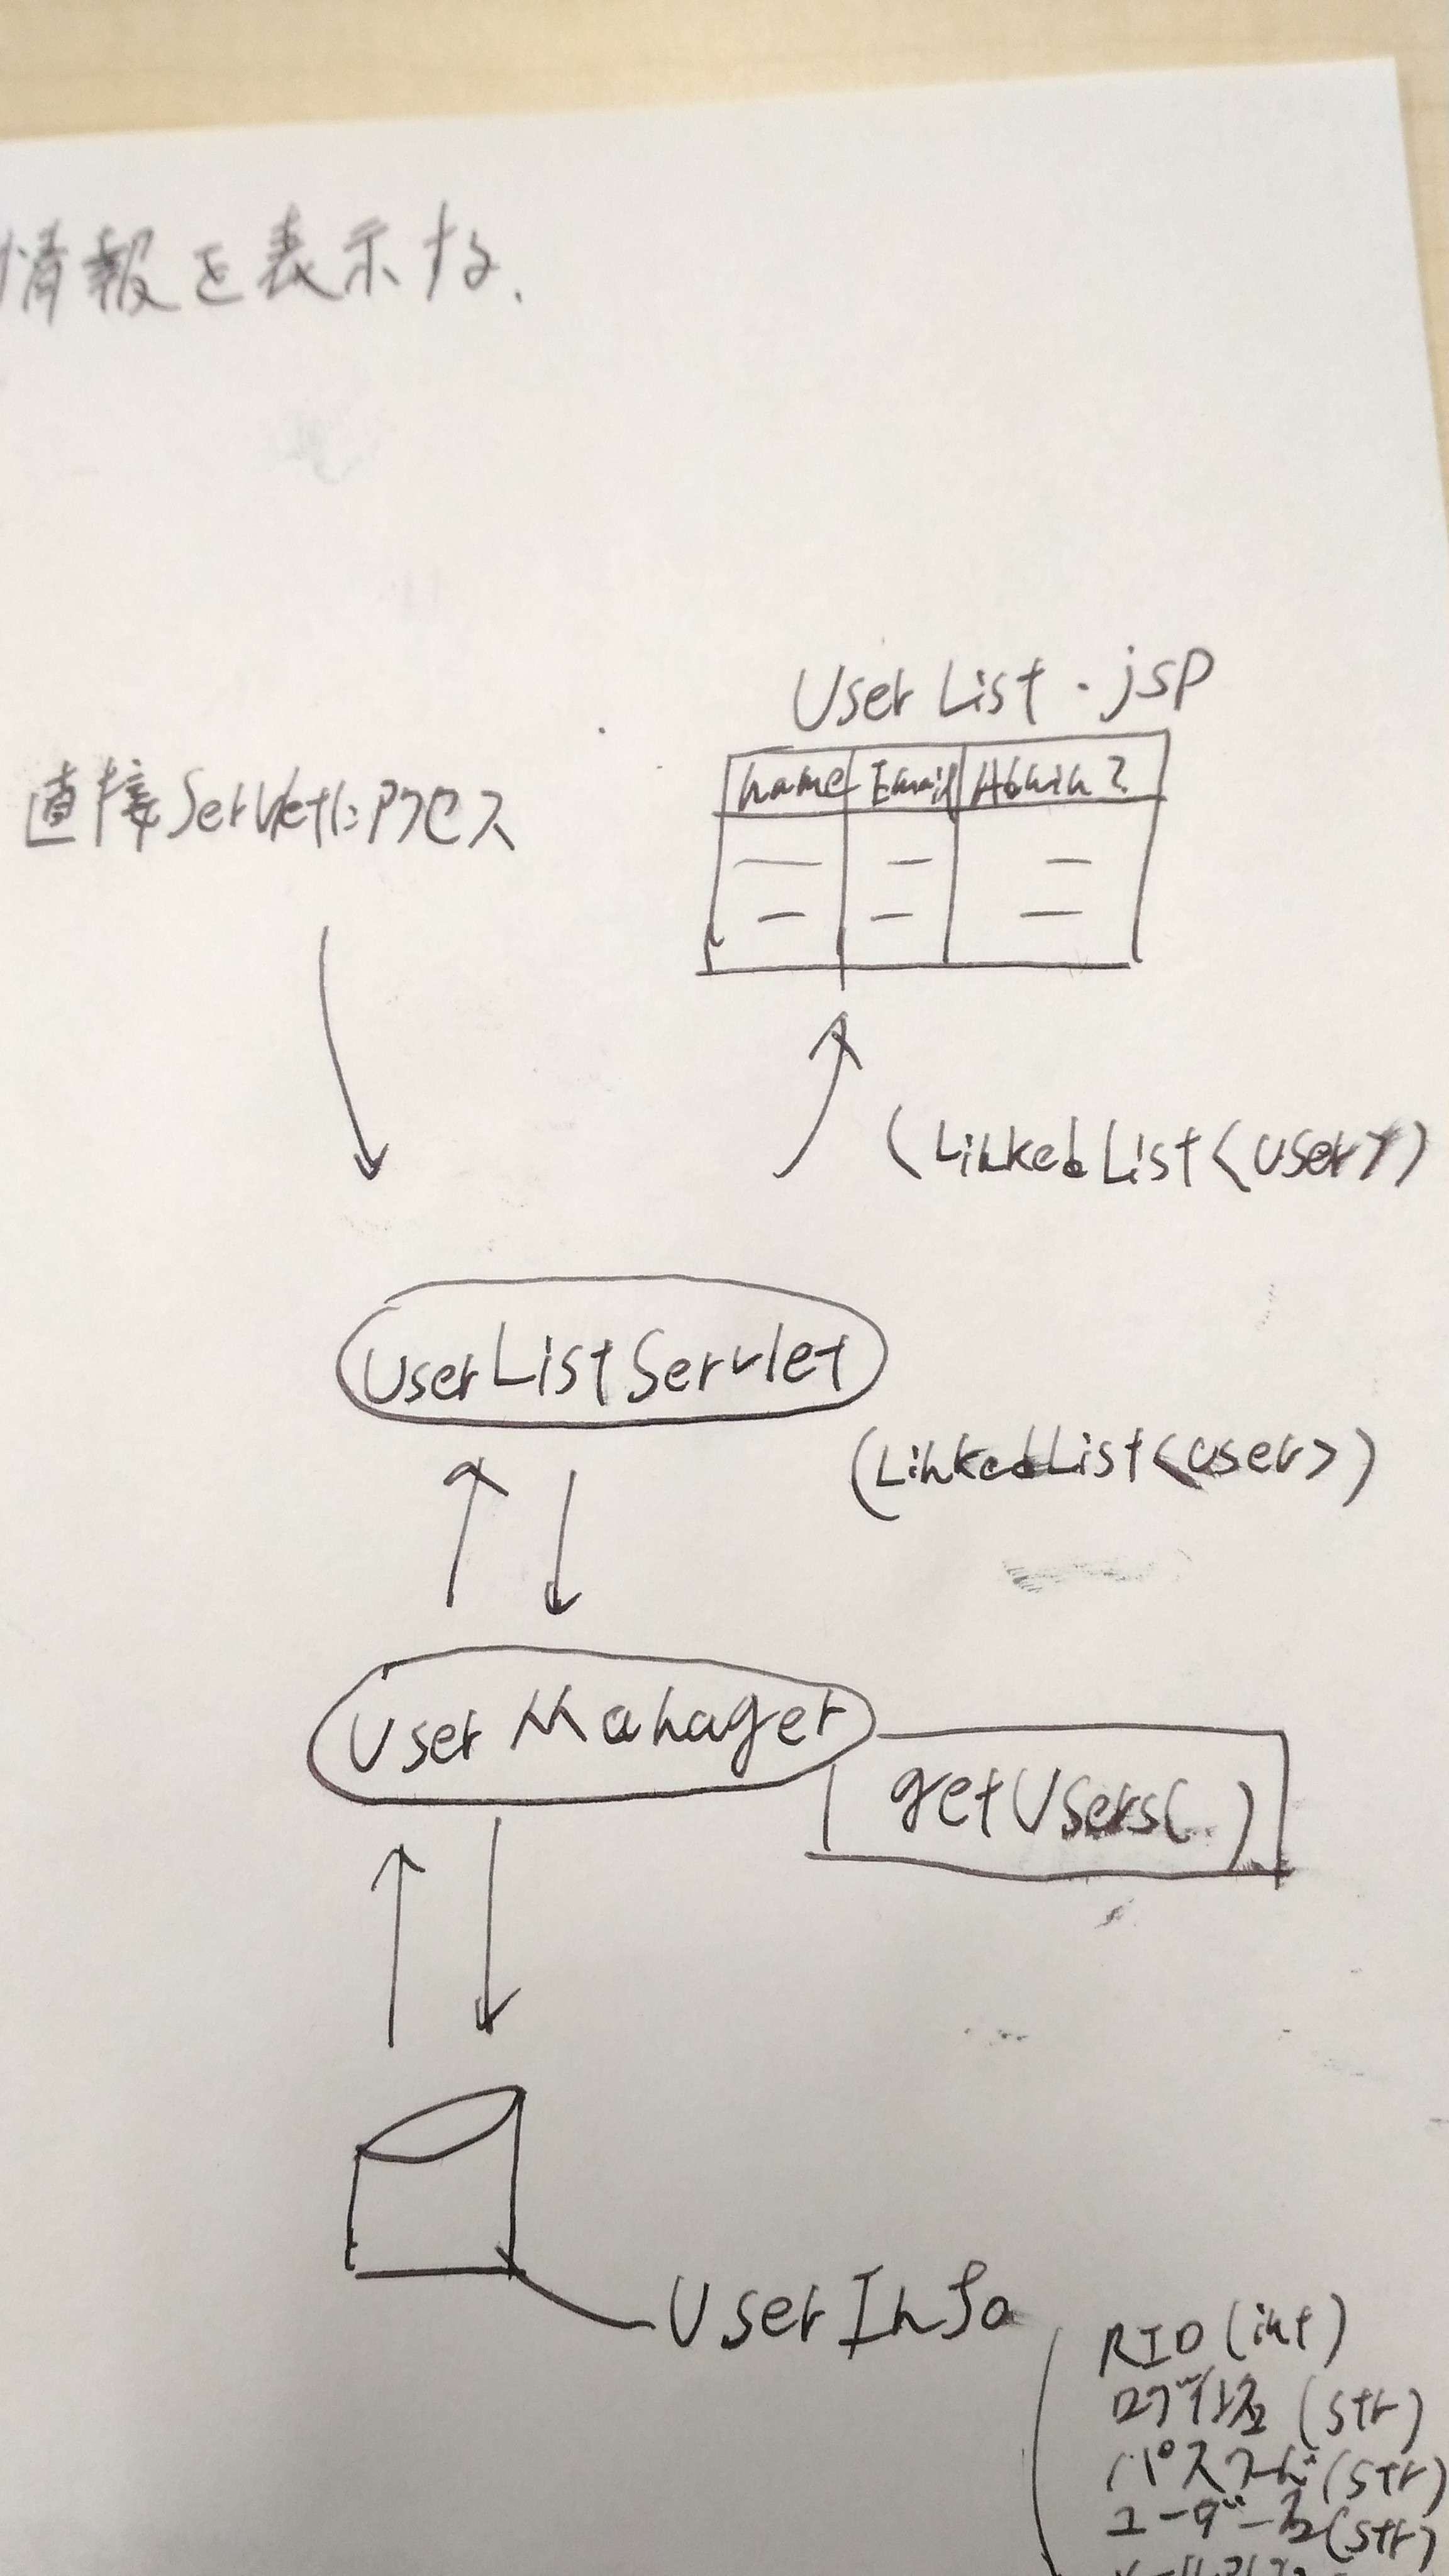 情報を表示する.
User List.jsp
name Email Admin?
直接Servletにアクセス
(LinkedList<User>)
UserListServlet
(LinkedList<User>)
UserManager
getUsers()
UserInfo
RID(int)
ログイン名(str)
パスワード(str)
ユーザー名(str)